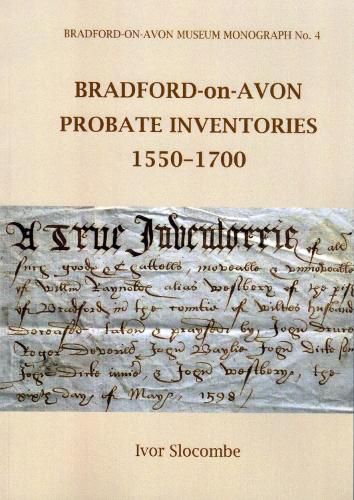 BRADFORD-ON-AVON MUSEUM MONOGRAPH No. 4
BRADFORD-on-AVON
PROBATE INVENTORIES
1550–1700
A True Inventorrie of all
such goods & cattells, moveable & unmoveable
of Willm Raynolde alias Westbery of the
of Bradford in the comtie of Wiltes husband
deceased taken & praysed by John Druce
Roger Deverill John Baylie John Dicke
John Dicke & by the
day of May, 1598
Ivor Slocombe